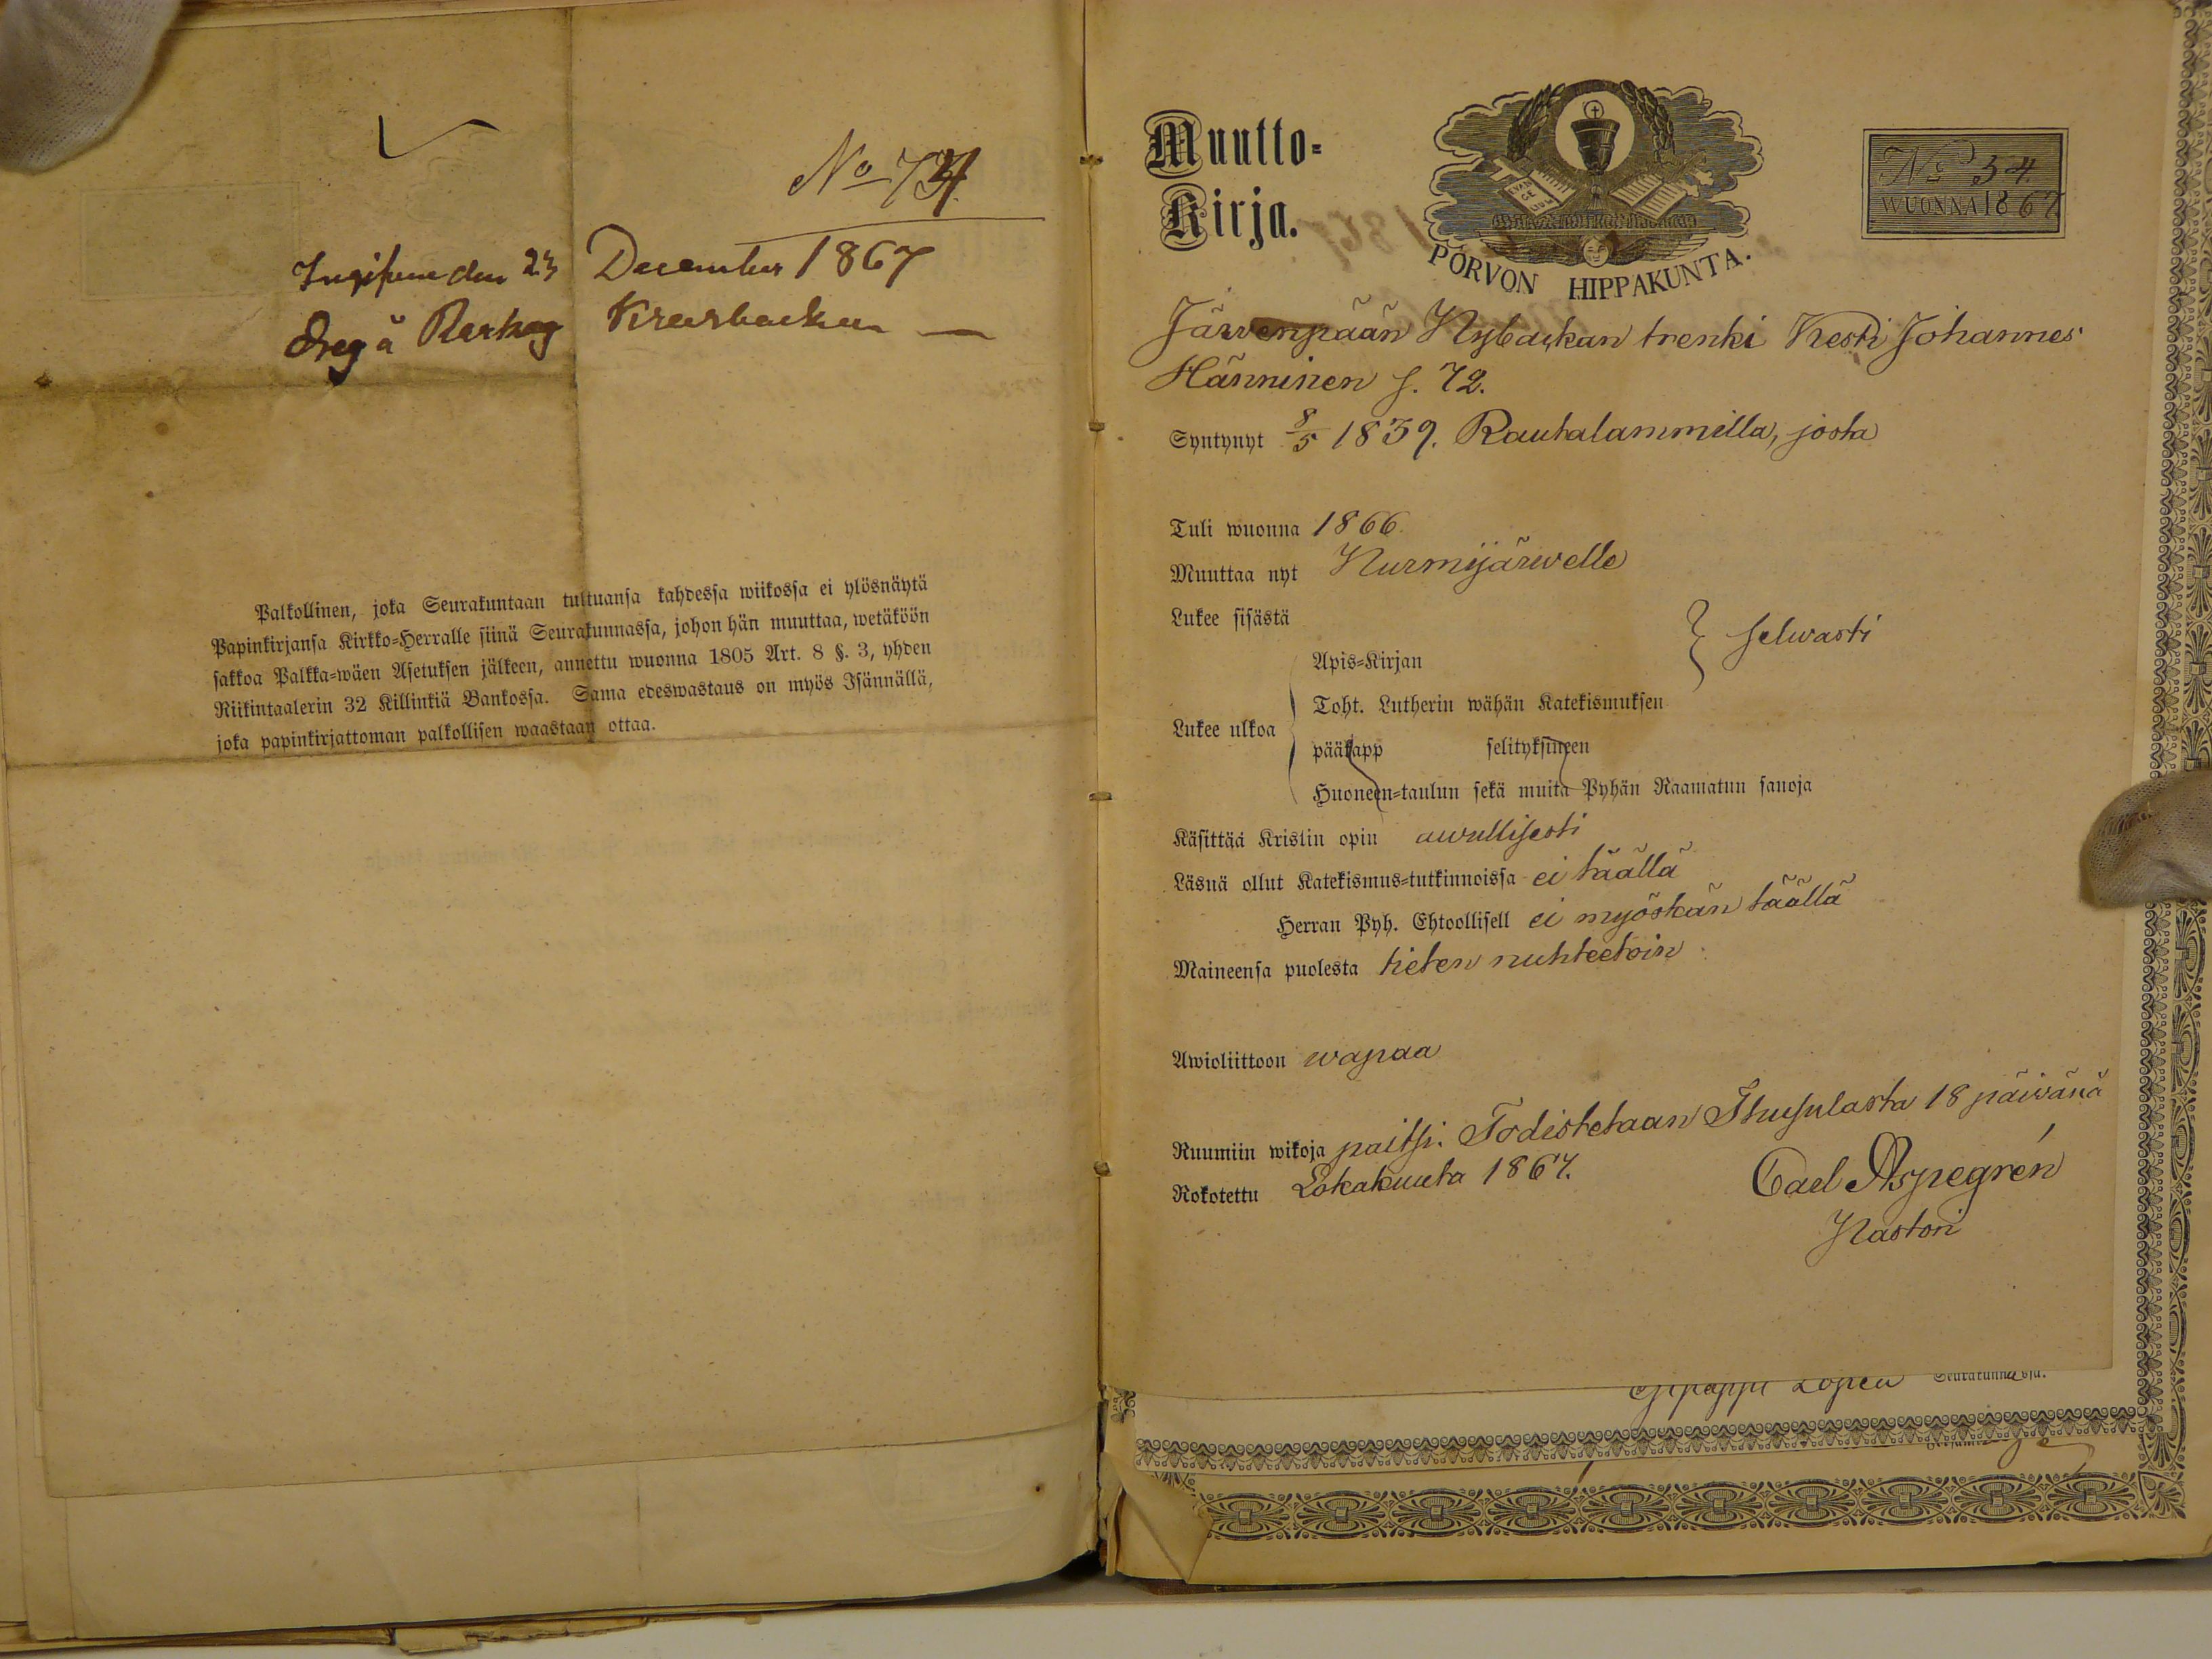 No 734
Ingifven den 23 December 1867
Dreg å Raskog Krearbacken
Palkollinen, joka Seurakuntaan tultuansa kahdessa wiikossa ei ylösnäytä
Papinkirjansa Kirkko=Herralle siinä Seurakunnassa, johon hän muuttaa, wetäköön
sakkoa Palkka=wäen Asetuksen jälkeen, annettu wuonna 1805 Art. 8 §. 3, yhden
Riikintaalerin 32 Killinkiä Bankossa. Sama edeswastaus on myös Isännällä,
joka papinkirjattoman palkollisen waastaan ottaa.
Muutto=
Kirja.
EVAN GE LIUM
PORVON HIPPAKUNTA.
No 34
WUONNA 1867
Järwenpään Nybackan trenki Kesti Johannes
Hänninen s. 72.
Syntynyt 8/5 1839. Rautalammilla, josta
Tuli wuonna 1866
Muuttaa nyt Nurmijärwelle
Lukee sisästä
Apis=Kirjan
selwasti
Toht. Lutherin wähän Katekismuksen
Lukee ulkoa
pääkapp selityksineen
Huoneen=taulun sekä muita Pyhän Raamatun sanoja
Käsittää Kristin opin awullisesti
Läsnä ollut Katekismus=tutkinnoissa ei täällä
Herran Pyh. Ehtoollisell ei myöskän täällä
Maineensa puolesta tieten nuhteetoin
Awioliittoon wapaa
Ruumiin wikoja paitsi. Todistetaan Thusulasta 18 päiwänä
Rokotettu Lokakuuta 1867.
Carl Aspegrén
Pastori
Lopen Seurakunnassa.